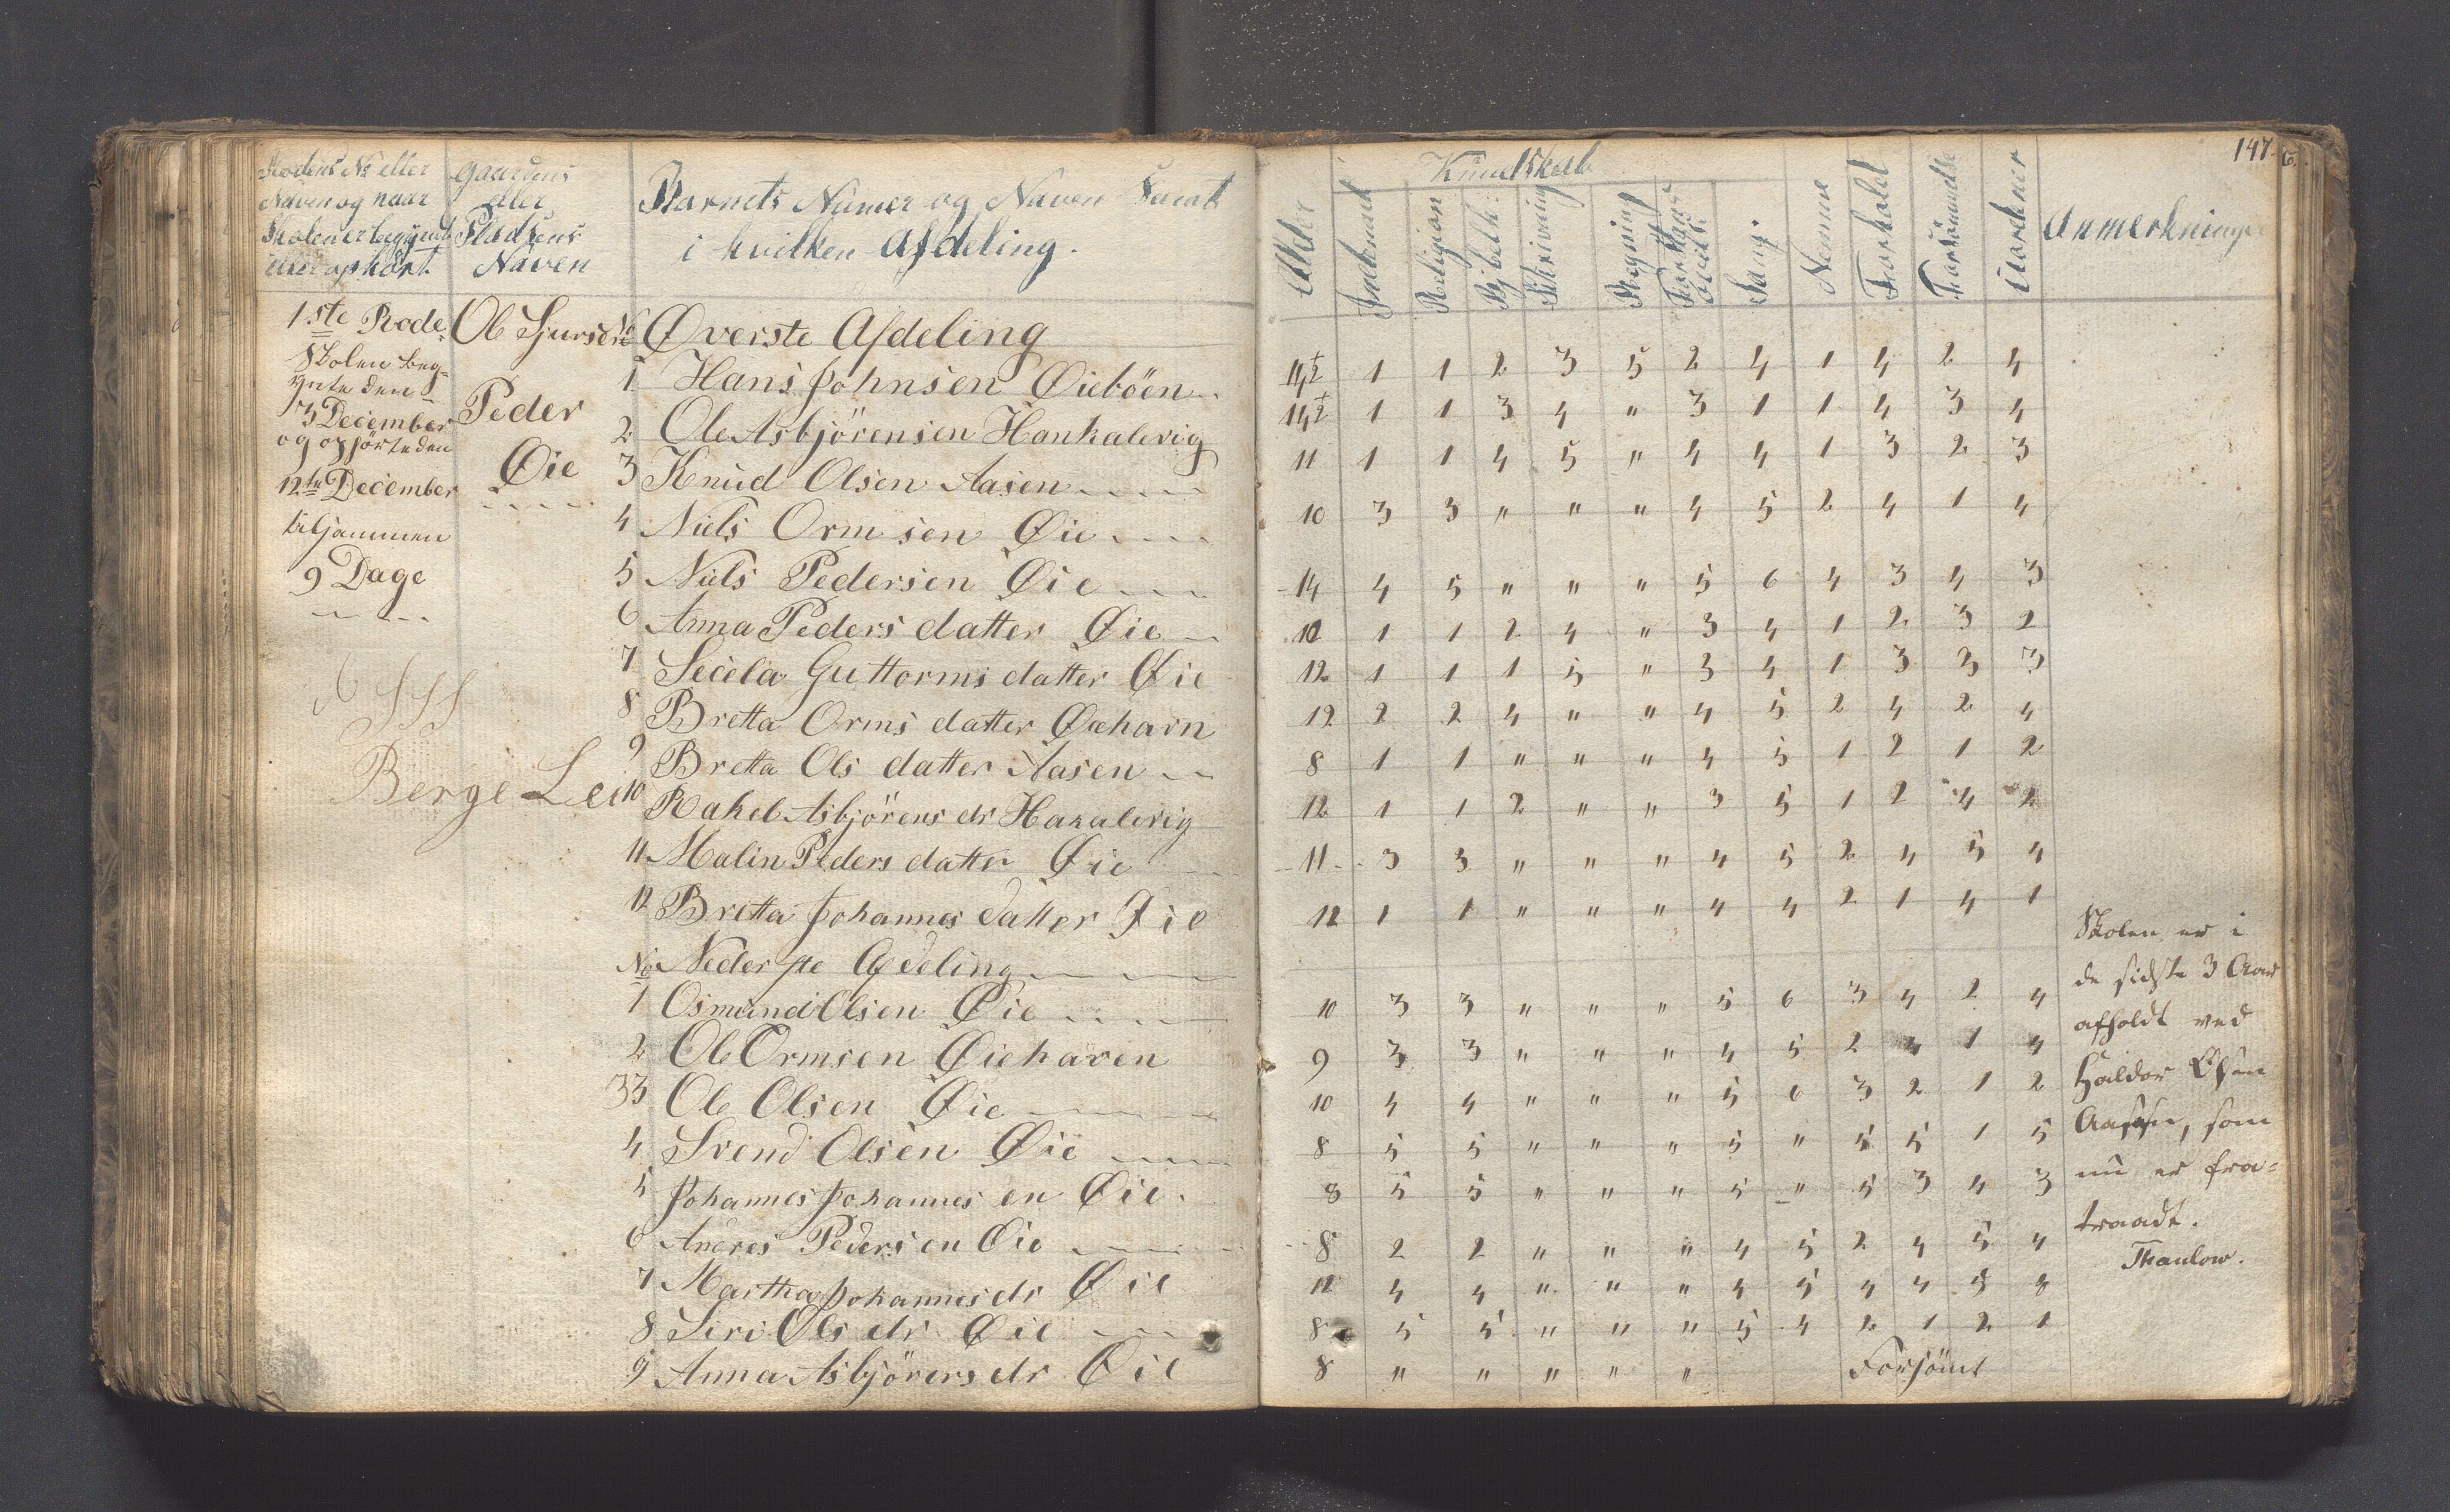 Rodens No eller
Naven og naar
Skolen er begynt
eller ophört.
Gaardens
eller
Pladsens
Naven
Barnets Numer og Naven Samt
i hvilken Afdeling.
1ste Rode.
Skolen beg-
ynte den
3 December
og ophörte den
12te December
tilsammen
9 Dage
Ole Sjursen
Peder
Øie
Berge Lei
No Øverste Afdeling
1 Hans Johnsen Øieböen
2 Ole Asbjörensen Hankalevig
3 Knud Olsen Aasen
4 Niels Ormsen Øie
5 Niels Pedersen Øie
6 Anna Peders datter Øie
7 Secela Guttorms datter Øie
8 Bretta Orms datter Øieharn
9 Bretta Ols datter Aasen
10 Rakel Asbjörens dr Hazalevig
11 Malin Peders datter Øie
12 Bretta Johannes datter Øie
No Nederste Afdeling
1 Osmund Olsen Øie
2 Ole Ormsen Øieharen
33 Ole Olsen Øie
4 Svend Olsen Øie
5 Johannes Johannesen Øie.
6 Andres Pedersen Øie
7 Martha Johannes dr Øie
8 Siri Ols dr Øie
9 Anna Asbjörens dr Øie
147
Kundskab
Alder Indenad Religion Bibelh: Skrivning Regning Forstands Sang. Nemme Forhold Forsömmelse Anmerkninger
14½ 1 1 2 3 5 2 4 1 4 2 4
14½ 1 1 3 4 " 3 1 1 4 3 4
11 1 1 4 5 " 4 4 1 3 2 3
10 3 3 " " " 4 5 2 4 1 4
14 4 5 " " " 5 6 4 3 4 3
10 1 1 2 4 " 3 4 1 2 3 2
12 1 1 1 5 " 3 4 1 3 3 3
12 2 2 4 " " 4 5 2 4 2 4
8 1 1 " " " 4 5 1 2 1 2
12 1 1 2 " " 3 5 1 2 4 2
11 3 3 " " " 4 5 2 4 5 4
12 1 1 " " " 4 4 2 1 4 1
10 3 3 " " " 5 6 3 4 2 4
9 3 3 " " " 4 5 2 4 1 4
10 4 4 " " " 5 6 3 2 1 2
8 5 5 " " " 5 " 5 5 1 5
8 5 5 " " " 5 " 5 3 4 3
8 2 2 " " " 4 5 2 4 5 4
12 4 4 " " " 4 5 4 4 5 4
8 5 5 " " " 5 4 2 1 2 1
8 " " " " " Forsömt
Skolen er i
de sidste 3 Aar
afholdt ved
Haldor Olsen
Aasen, som
nu er fra-
traadt.
Thaulow.